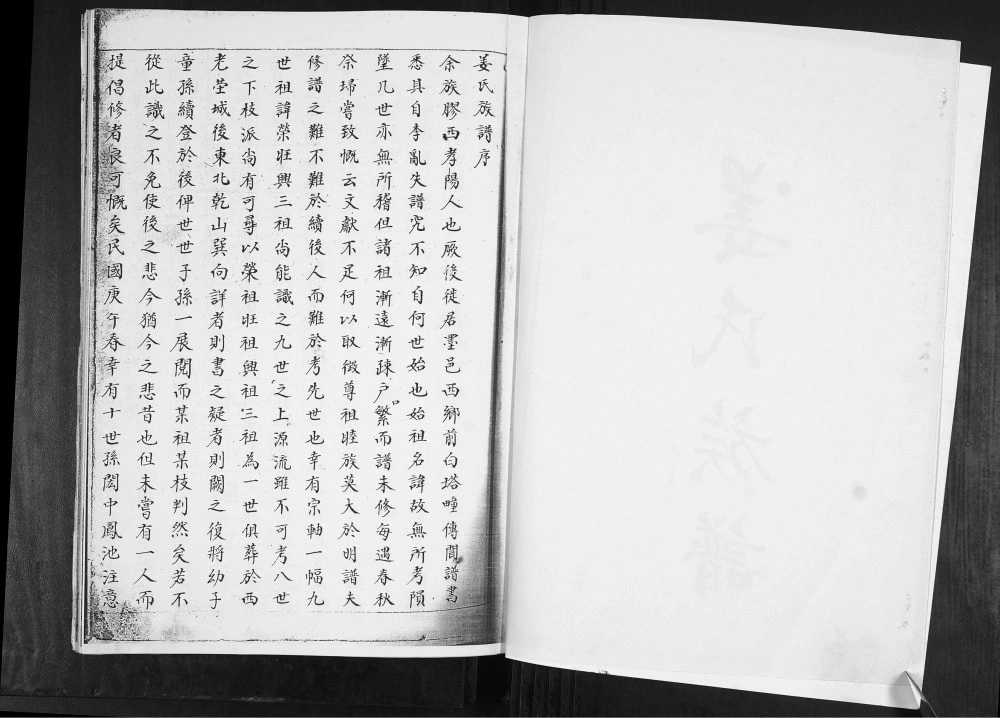 姜氏族譜序
余族膠西孝陽人也厥後徙居墨邑西鄉前白塔疃傳聞譜書
悉具自李亂失譜究不知自何世始也始祖名諱故無所考隕
墜几世亦無所稽但諸祖漸遠漸疎户口繁而譜未修每遇春秋
祭埽嘗致慨云文獻不足何以取徵尊祖睦族莫大於明譜夫
修譜之難不難於續後人而難於考先世也幸有宗軸一幅九
世祖諱榮旺興三祖尚能識之九世之上源流雖不可考八世
之下枝派尚有可尋以榮祖旺祖興祖三祖為一世俱葬於西
老塋城後東北乾山巽向詳者則書之疑者則闕之復將幼子
童孫續登於後俾世世子孫一展閱而某祖某枝判然矣若不
從此識之不免使後之悲今猶今之悲昔也但未嘗有一人而
提倡修者良可慨矣民國庚午春幸有十世孫閎中鳳池注意
姜氏族譜